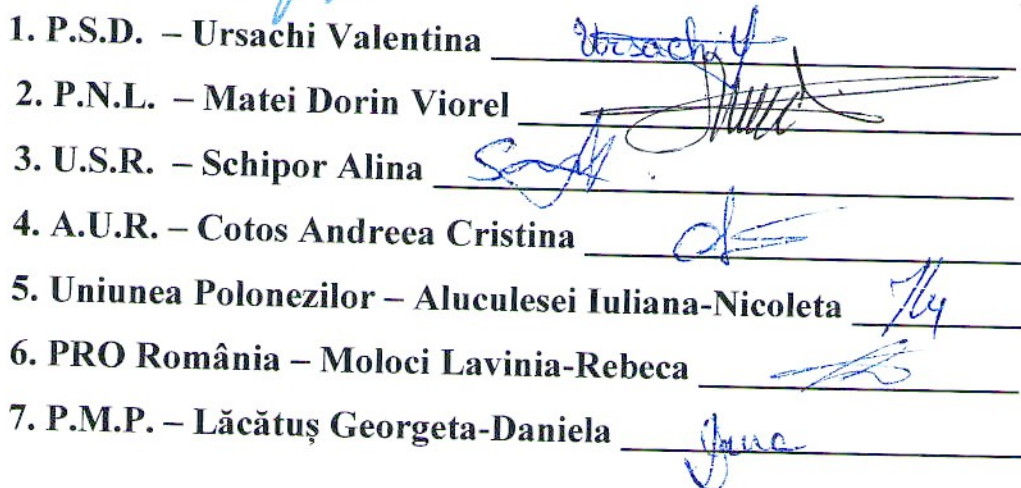 1. P.S.D. – Ursachi Valentina Ursachi V
2. P.N.L. – Matei Dorin Viorel
3. U.S.R. – Schipor Alina
4. A.U.R. – Cotos Andreea Cristina
5. Uniunea Polonezilor – Aluculesei Iuliana-Nicoleta
6. PRO România – Moloci Lavinia-Rebeca
7. P.M.P. – Lăcătuș Georgeta-Daniela